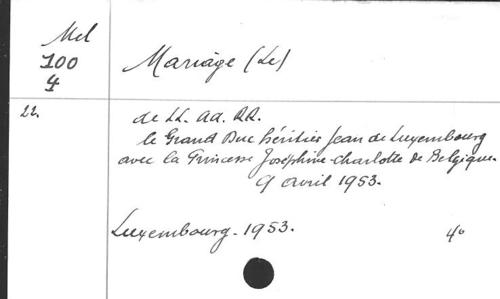 Mel
100
4
Mariage (Le)
22.
de LL. AA. RR.
le Grand Duc héritier Jean de Luxembourg
avec la Princesse Joséphine-Charlotte de Belgique.
9 avril 1953.
Luxembourg. 1953.
4°